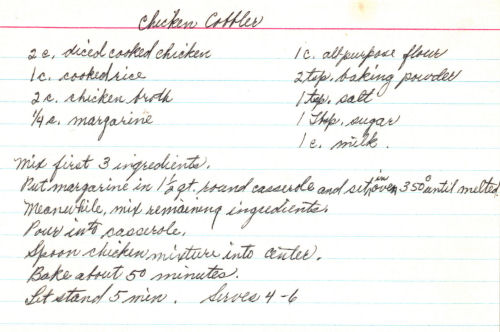 Chicken Cobbler
2 c. diced cooked chicken
1 c. cooked rice
2 c. chicken broth
1/4 c. margarine
1 c. all purpose flour
2 tsp. baking powder
1 tsp. salt
1 Tbsp. sugar
1 c. milk.
Mix first 3 ingredients.
Put margarine in 1 1/2 qt. round casserole and set in oven 350° until melted.
Meanwhile, mix remaining ingredients.
Pour into casserole.
Spoon chicken mixture into center.
Bake about 50 minutes.
Let stand 5 min. Serves 4-6